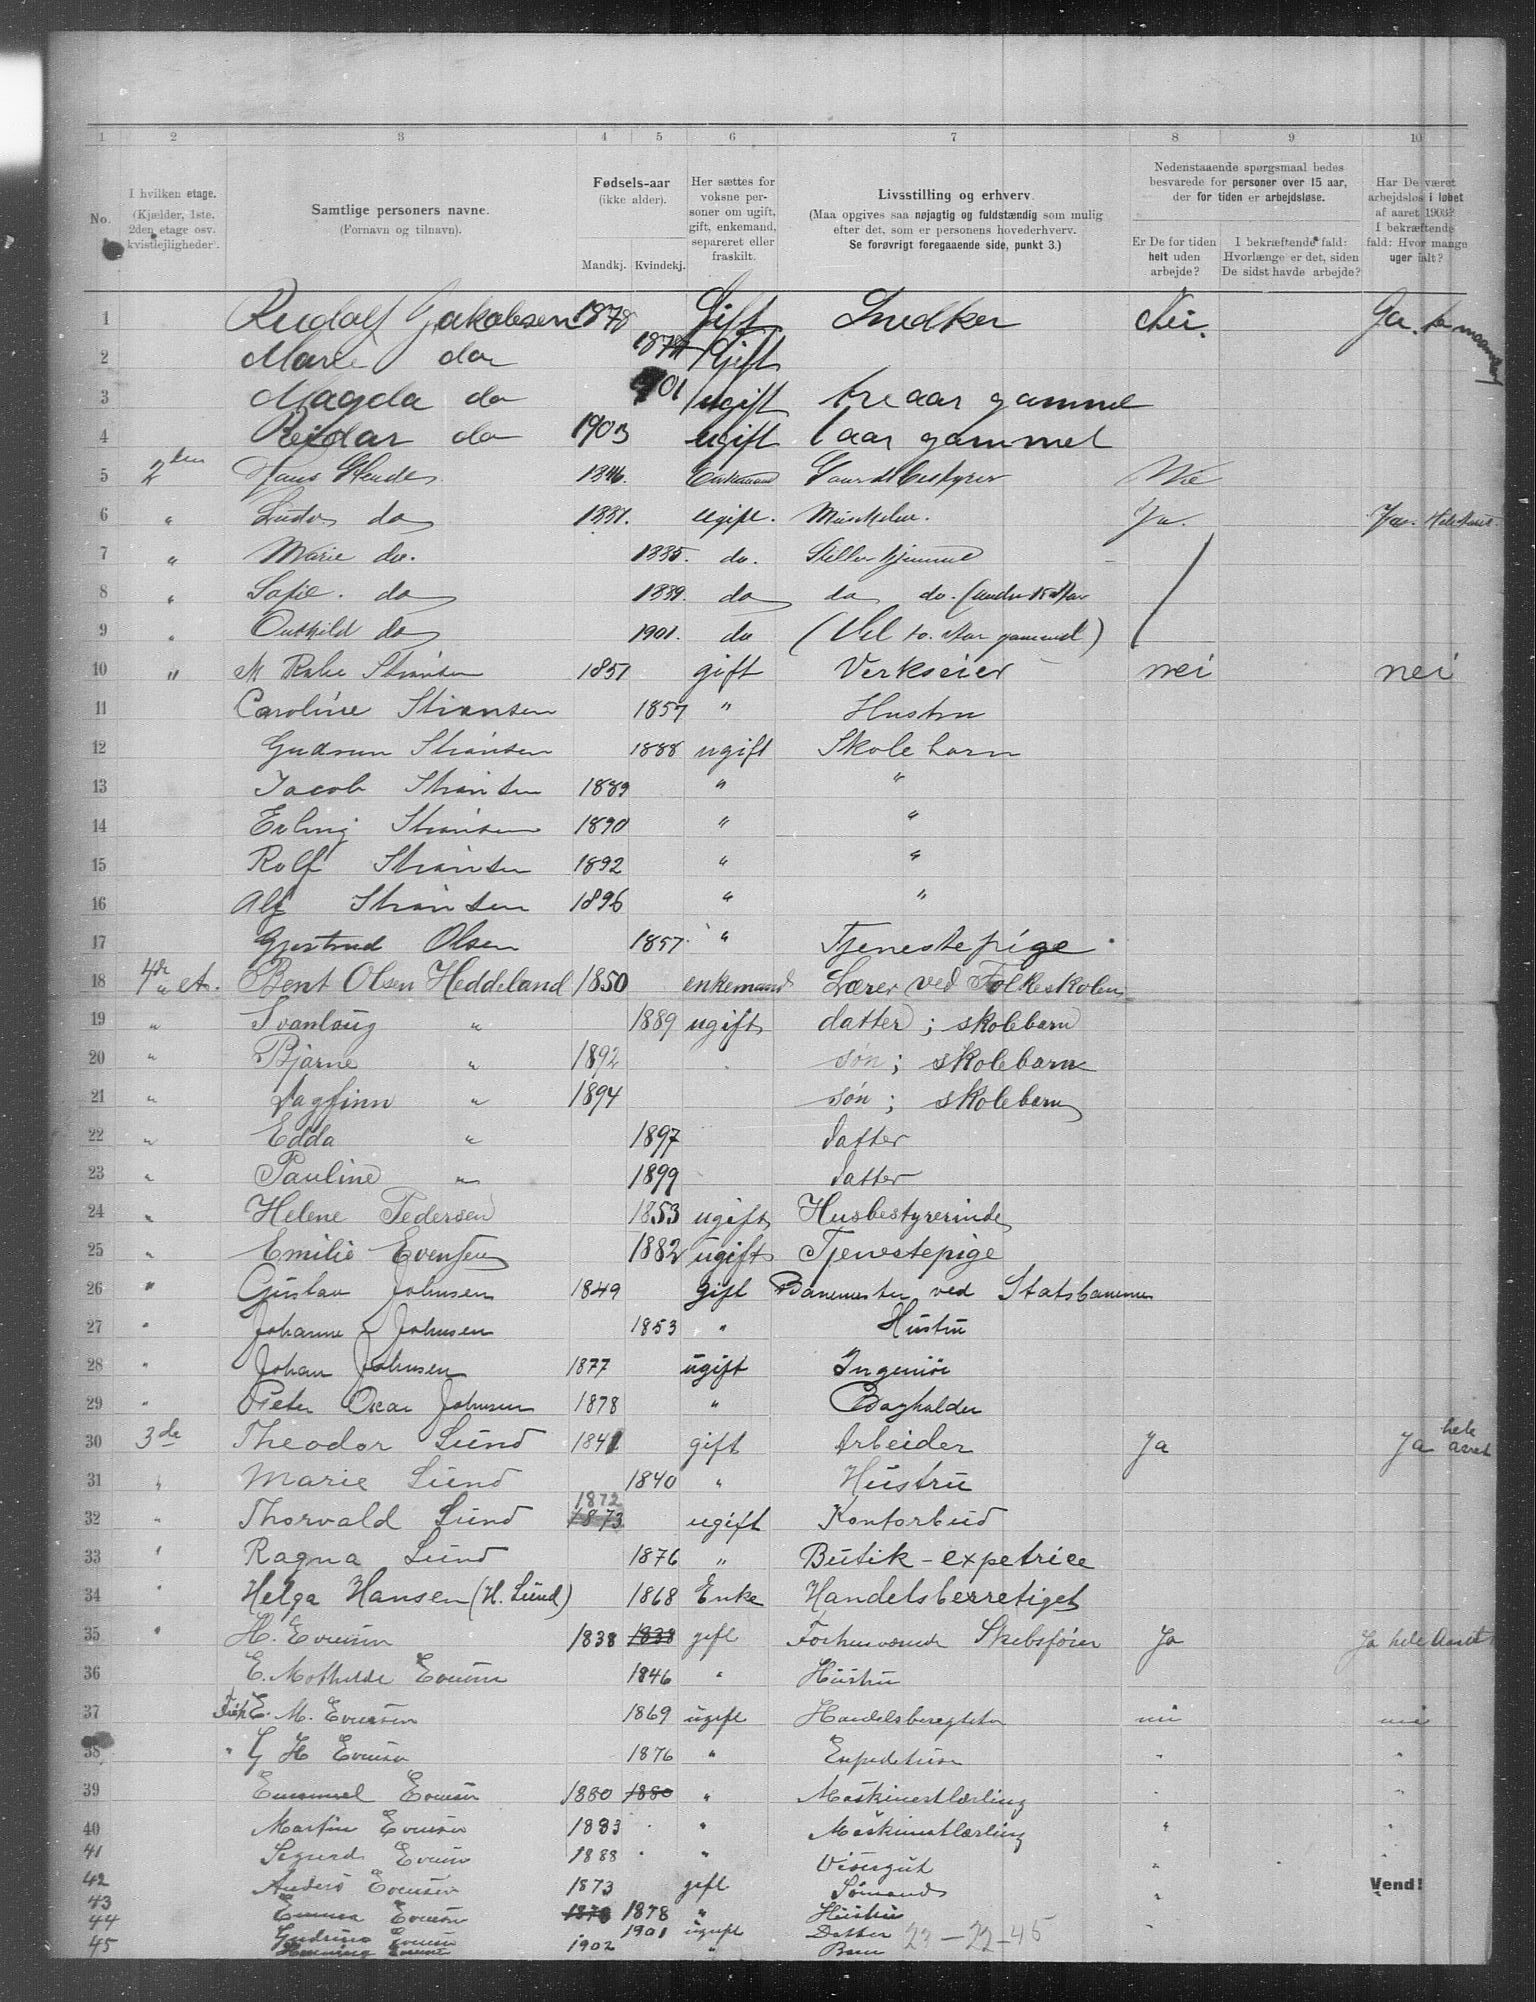 1 2 3 4 5 6 7 8 9 10
No.
I hvilken etage. (Kjælder, 1ste. 2den etage osv. kvistleiligheder).
Samtlige personers navne.
(Fornavn og tilnavn).
Fødsels-aar
(ikke alder).
Mandkj. Kvindekj.
Her sættes for voksne personer om ugift, gift, enkemand, separeret eller fraskilt.
Livsstilling og erhverv.
(Maa opgives saa nøjagtig og fuldstændig som mulig efter det, som er personens hovederhverv.
Se forøvrigt foregaaende side, punkt 3.)
Nedenstaaende spørgsmaal bedes besvarede for personer over 15 aar, der for tiden er arbejdsløse.
Er De for tiden helt uden arbejde?
I bekræftende fald: Hvorlænge er det, siden De sidst havde arbejde?
Har De været arbejdsløs i løbet af aaret 1903? I bekræftende fald: Hvor mange uger ialt?
1 Rudolf Jakobsen 1878 Gift Snedker Nei. Ja.
2 Marie do 1874 Gift
3 Magda do 1901 ugift tre aar gammel
4 Reidar do 1903 ugift 1 aar gammel
5 2den Hans 1846. Enkemand Gaardbestyrer Nei
6 " Ludv do 1881. ugift. Ja. Ja.
7 " Marie do. 1885. do. Steller hjemme
8 " Sofie. do 1889. do do do. (under 15 Aar
9 " do 1901. do (Vel to. Aar gammel)
10 " 1851 gift Verkseier nei nei
11 Caroline 1857 " Hustru
12 Gudrun 1888 ugift Skolebarn
13 Jacob 1889 " "
14 Erling 1890 " "
15 Rolf 1892 " "
16 Alf 1896 " "
17 Gjertrud Olsen 1857. " Tjenestepige
18 4de et. Bent Olsen Heddeland 1850 enkemand Lærer ved Folkeskolen
19 " Svanlaug " 1889 ugift datter; skolebarn
20 " Bjarne " 1892 søn; skolebarn
21 " Dagfinn " 1894 søn; skolebarn
22 " Edda " 1897 datter
23 " Pauline " 1899 datter
24 " Helene Pedersen 1853 ugift Husbestyrerinde
25 " Emilie Evensen 1882 ugift Tjenestepige
26 " Gustav Johnsen 1849 gift Banemester ved Statsbanerne
27 " Johanne Johnsen 1853 " Hustru
28 " Johan Johnsen 1877 ugift Ingeniør
29 " Peter Oscar Johnsen 1878 " Bogholder
30 3de Theodor Lund 1841 gift Arbeider Ja Ja hele aaret
31 " Marie Lund 1840 " Hustru
32 " Thorvald Lund 1872 1873 ugift Kontorbud
33 " Ragna Lund 1876 " Butik-expetrice
34 " Helga Hansen (H. Lund) 1868 Enke Handelsberretiget
35 " H. Evensen 1838 1838 gift Forhenværende Skibsfører Ja Ja hele Aaret
36 E. Mathilde Evensen 1846 " Hustru
37 Frøk E. M. Evensen 1869 ugift nei nei
38 " G H Evensen 1876 " " "
39 Emanuel Evensen 1880 1880 " Maskinistlærling " "
40 Martin Evensen 1883 " " Maskinistlærling " "
41 Sigurd Evensen 1888 " " Visergut "
42 Anders Evensen 1873 gift Sømand "
43 Emma Evensen 1878 1878 " Hustru
44 Evensen 1901 ugift Datter "
45 Henning Evensen 1902 " Barn
23 - 22 - 45
Vend!